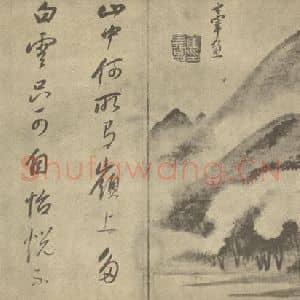 山中何所有嶺上多
白雲只可自怡悅不
Shufawang.CN